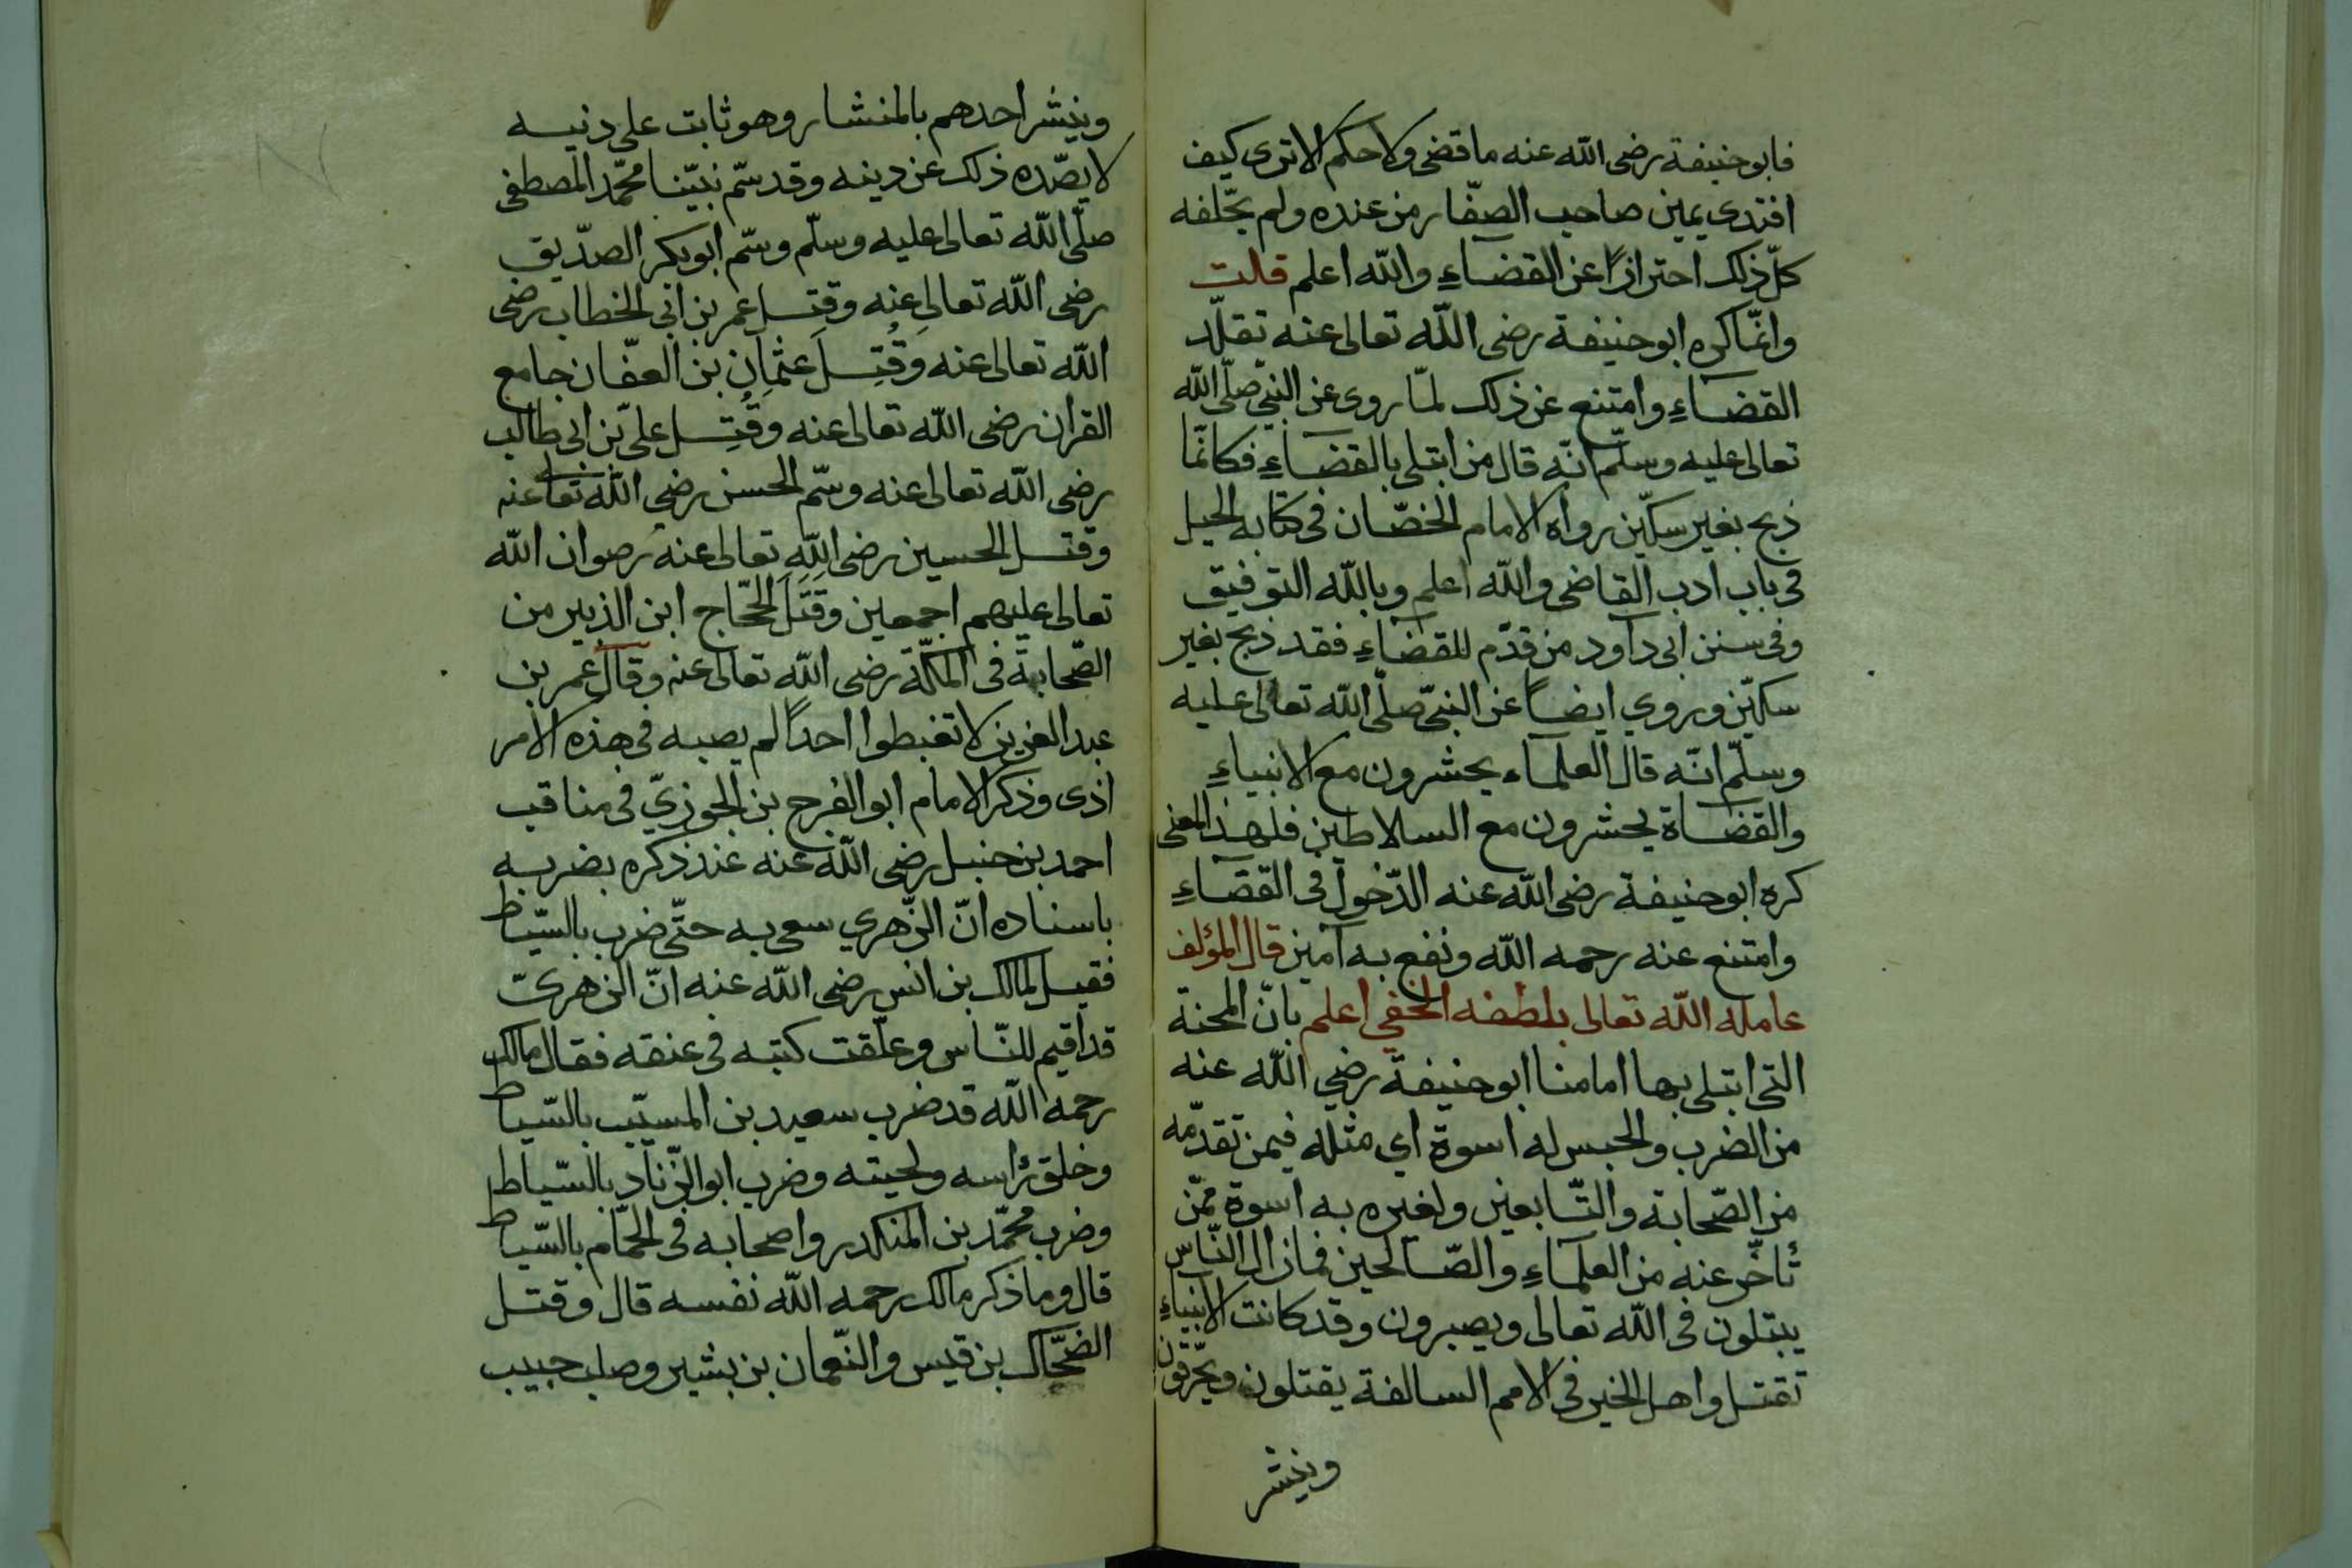 فابوحنيفة رضى الله عنه ما قضى ولا حكم الا ترى كيف
افتدى يمين صاحب الصفّار من عنده ولم يحّلفه
كلّ ذلك احترازًا عن القضاءِ والله اعلم قلت
وانمّا كره ابوحنيفة رضى الله تعالى عنه تقلّد
القضاءِ وامتنع عن ذلك لمّا روى عن النبىّ صلّى الله
تعالى عليه وسلّم انّه قال من ابتلى بالقضاءِ فكانمّا
ذبح بغير سكّين رواه الامام الخصّاف فى كتابه الحيل
فى باب ادب القاضى والله اعلم وبالله التوفيق
وفى سنن ابى داود من قدّم للقضاءِ فقد ذبح بغير
سكّين وروي ايضاً عن النبىّ صلّى الله تعالى عليه
وسلّم انّه قال العلماء يحشرون مع الانبياءِ
والقضاة يحشرون مع السلاطين فلهذا المعنى
كره ابوحنيفة رضى الله عنه الدّخول فى القضاءِ
وامتنع عنه رحمه الله ونفع به آمين قال المؤلف
عامله الله تعالى بلطفه الخفي اعلم بانّ المحنة
التى ابتلى بها امامنا ابوحنيفة رضي الله عنه
من الضرب والحبس له اسوة اي مثله فيمن تقدّمه
من الصّحابة والتّابعين ولغيره به اسوة ممّن
تأخّر عنه من العلماءِ والصّالحين فمازال النّاس
يبتلون فى الله تعالى ويصبرون وقد كانت الانبياءِ
تقتل واهل الخير فى الامم السالفة يقتلون ويحّرقون
وينشر
وينشر احدهم بالمنشار وهو ثابت على دنيه
لا يصّده ذلك عن دينه وقد سّم نبيّنا محمّد المصطفى
صلّى الله تعالى عليه وسلّم وسّم ابوبكر الصّديق
رضى الله تعالى عنه وقتل عمر بن ابى الخطاب رضى
الله تعالى عنه وقُتِلَ عثمان بن العفّان جامع
القرآن رضى الله تعالى عنه وقُتِل علىّ بن ابى طالب
رضى الله تعالى عنه وسّم الحسن رضى الله تعالى عنه
وقتل الحسين رضى اللهِ تعالى عنه رصوان الله
تعالى عليهم اجمعين وقَتَلَ الحّجاج ابن الزبير من
الصّحابة فى المكّة رضى الله تعالى عنه وقال عمر بن
عبد العزيز لا تغبطوا احداً لم يصبه فى هذه الامر
اذى وذكر الامام ابوالفرج بن الجوزيّ فى مناقب
احمد بن حنبل رضى الله عنه عند ذكره بضربه
باسناده انّ الزّهري سعى به حتّى ضرب بالسّياط
فقيل لمالك بن انس رضى الله عنه انّ الزهرىّ
قد اقيم للنّاس وعلّقت كتبه فى عنقه فقال مالك
رحمه الله قد ضرب سعيد بن المسيّب بالسّياط
وخلق رأسه ولحيته وضرب ابوالزّناد بالسّياط
وضرب محمّد بن المنكدر واصحابه فى الحمّام بالسّياط
قال وما ذكر مالك رحمه الله نفسه قال وقتل
الضحّاك بن قيس والنّعمان بن بشير وصلب حبيب